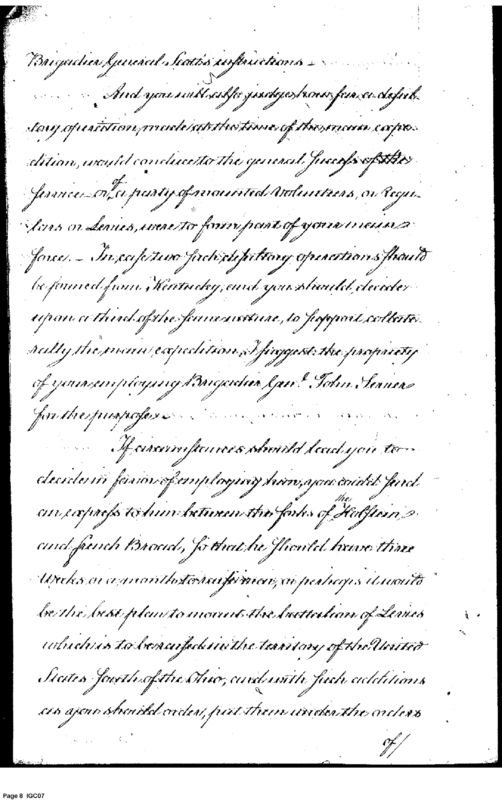 Brigadier General Scott's instructions —
And you will also judge, how far a desul-
tory operation, made at the time of the main expe-
dition, would conduce to the general success of the
service — or of a party of mounted Volunteers, or Regu-
lars or Levies, were to form part of your main
force. — In case two such desultory operations should
be formed from Kentucky, and you should decide
upon a third of the same nature, to support collate-
rally the main expedition, I suggest the propriety
of your employing Brigadier Genl. John Sevier
for the purpose. —
If circumstances should lead you to
decide in favor of employing him, you could send
an express to him between the forks of the Holstein
and french Broad, so that he should have three
weeks or a month to raise men, or perhaps it would
be the best plan to mount the battalion of Levies
which is to be raised in the territory of the United
States South of the Ohio, and with such additions
as you should order, put them under the orders
of/
Page 8 IGC07